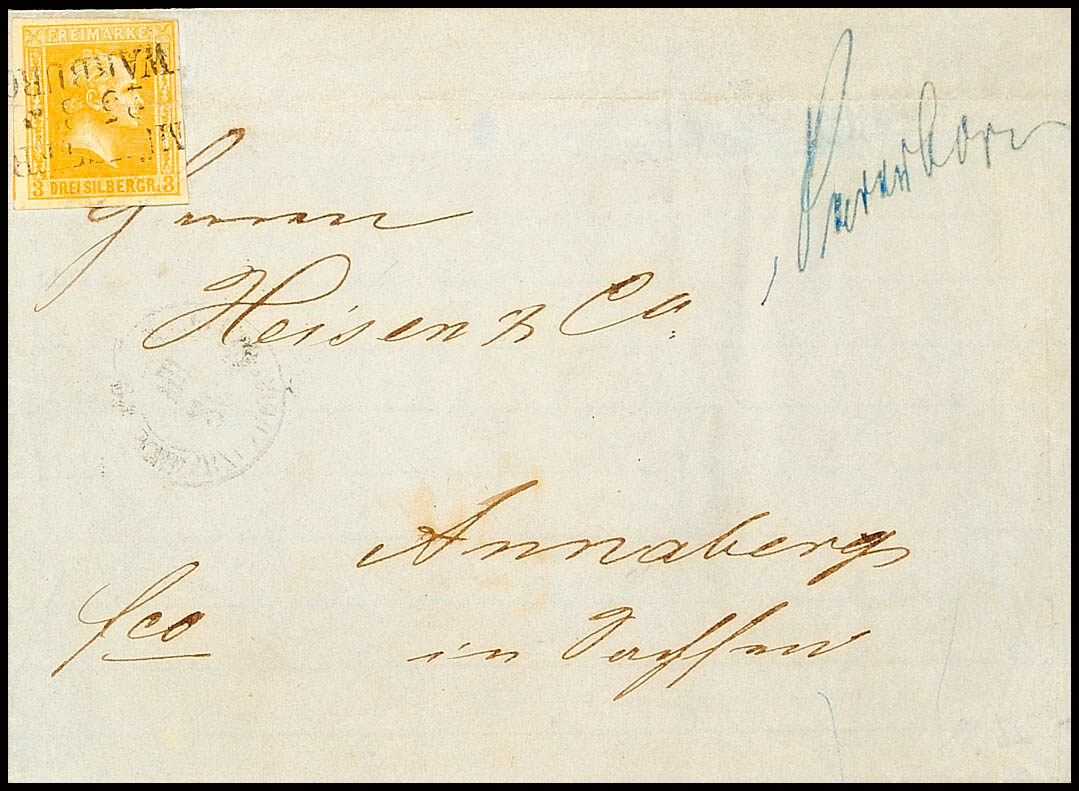 FREIMARKE
WARBURG
3 DREI SILBERGR. 3
Herren
Heisen & Co.
Annaberg
fco
in Sachsen